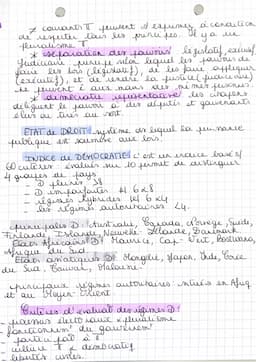 ≠ courants T peuvent s'exprimer à condition
de respecter tous les principes. Il y a un
pluralisme T
* séparation des pouvoirs législatif, exécutif,
judiciaire principe selon lequel les pouvoirs de
faire les lois (législatif), de les faire appliquer
(exécutif), et de rendre la justice (judiciaire)
ne peuvent être aux mains des mêmes personnes.
* démocratie représentative les citoyens
délèguent le pouvoir à des députés et gouvernants
élus ou tirés au sort.
ÉTAT DE DROIT: système ds lequel la puissance
publique est soumise aux lois.
INDICE de DÉMOCRATIE: c'est un indice basé s/
60 critères évalués sur 10 permet de distinguer
4 groupes de pays
- D pleines >8
- D imparfaites 6<x<8
- régimes hybrides 4<x
- les régimes autoritaires <4.
principales D: Australie, Canada, Norvège, Suède,
Finlande, Islande, Nouvelle Zélande, Danemark
États Africains D: Maurice, Cap-Vert, Botswana,
Afrique du Sud
États asiatiques D: Mongolie, Japon, Inde, Corée
du Sud, Taiwan, Malaisie.
principaux régimes autoritaires: situés en Afrique
et au Moyen-Orient.
Critères d'évaluat° des régimes D:
- processus électoraux & pluralisme
- fonctionnement du gouvernement
- participat° à
- culture T & démocratiq
- libertés civiles.